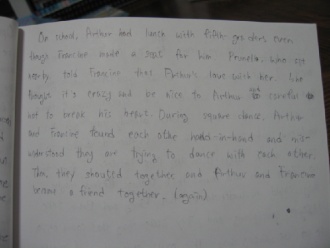 On school, Arthur had lunch with fifth-graders even
though Francine made a seat for him. Prunella, who sits
nearby, told Francine that Arthur's love with her. She
thought it's really and be nice to Arthur and careful
not to break his heart. During square dance, Arthur
and Francine toward each other hands-in-hand and mis-
understood they are trying to dance with each other.
Then, they shouted together and Arthur and Francine
became a friend together. (again)